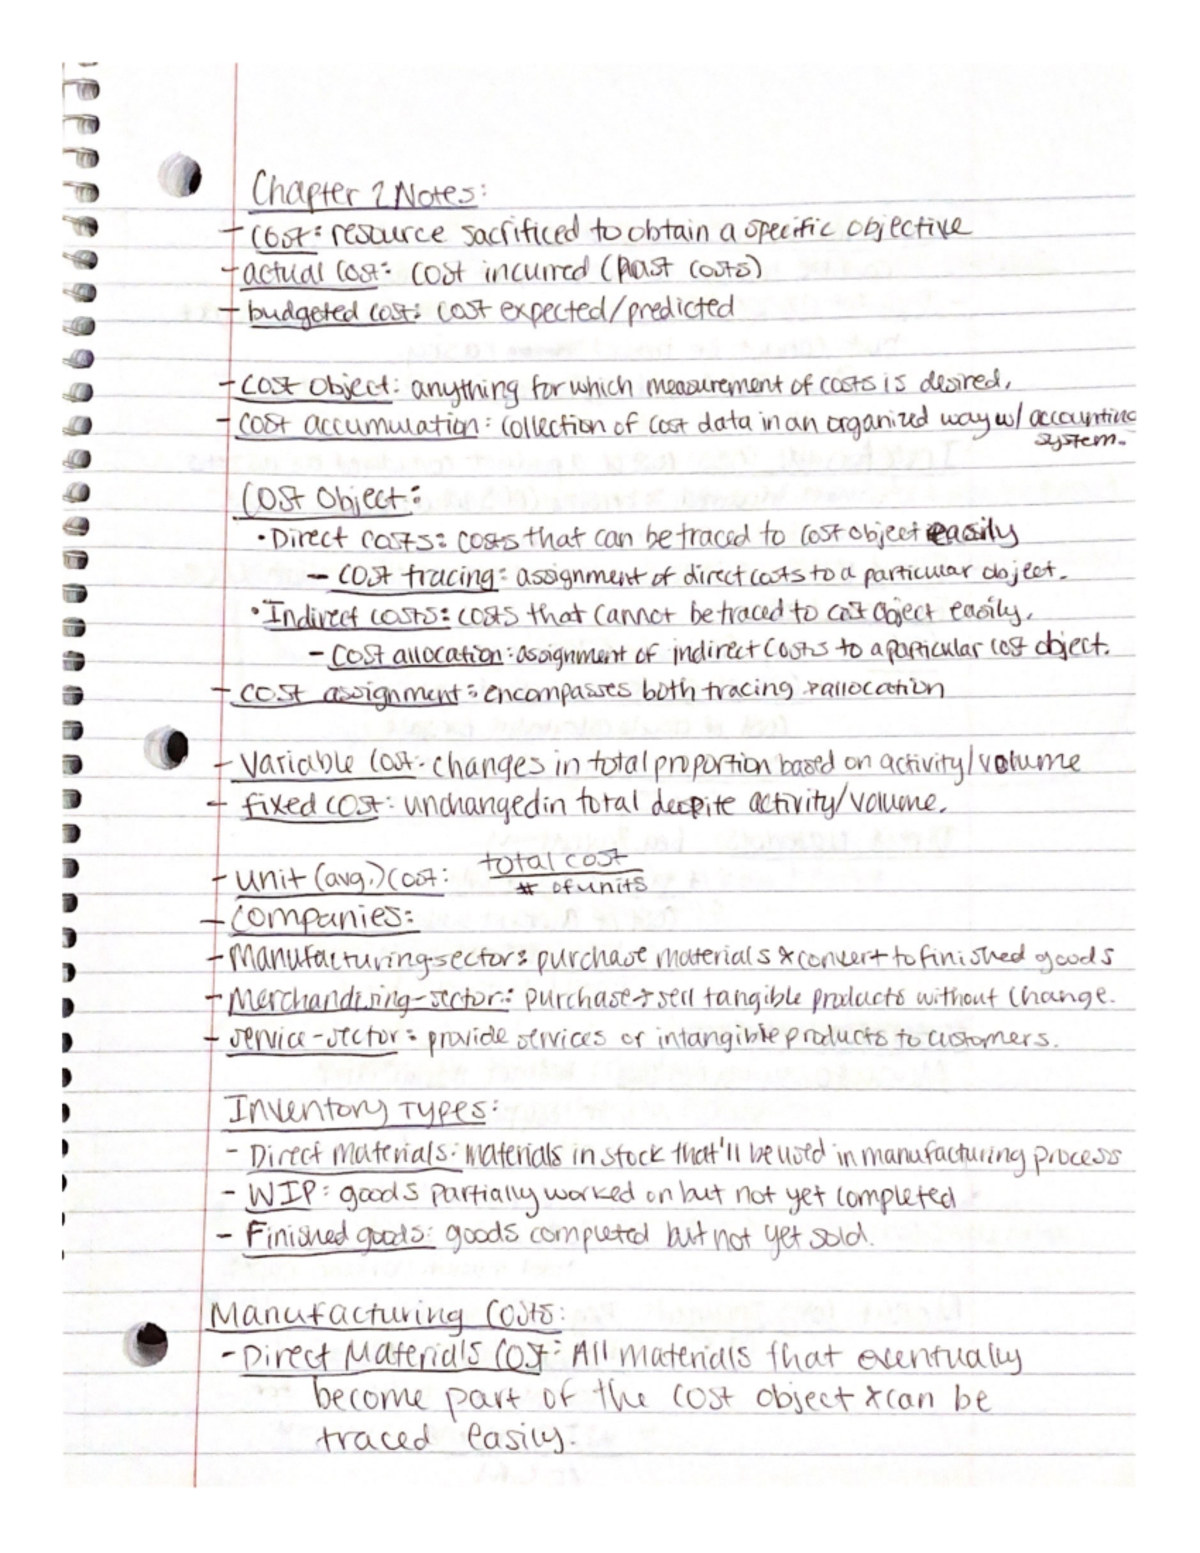 Chapter 2 Notes:
- Cost: resource sacrificed to obtain a specific objective
- actual cost: cost incurred (past costs)
- budgeted cost: cost expected/predicted
- Cost Object: anything for which measurement of costs is desired.
- Cost accumulation: collection of cost data in an organized way w/ accounting
system.
Cost Object:
• Direct costs: costs that can be traced to cost object easily
- cost tracing: assignment of direct costs to a particular object.
• Indirect costs: costs that cannot be traced to cost object easily.
- Cost allocation: assignment of indirect costs to a particular cost object.
- cost assignment: encompasses both tracing + allocation
- Variable Cost: changes in total proportion based on activity/volume
- fixed cost: unchanged in total despite activity/volume.
- unit (avg.) cost: total cost
# of units
- Companies:
- Manufacturing-sector: purchase materials & convert to finished goods
- Merchandising-sector: purchase + sell tangible products without change.
- service-sector: provide services or intangible products to customers.
Inventory Types:
- Direct Materials: materials in stock that'll be used in manufacturing process
- WIP: goods partially worked on but not yet completed
- Finished goods: goods completed but not yet sold.
Manufacturing Costs:
- Direct Materials Cost: All materials that eventually
become part of the cost object & can be
traced easily.